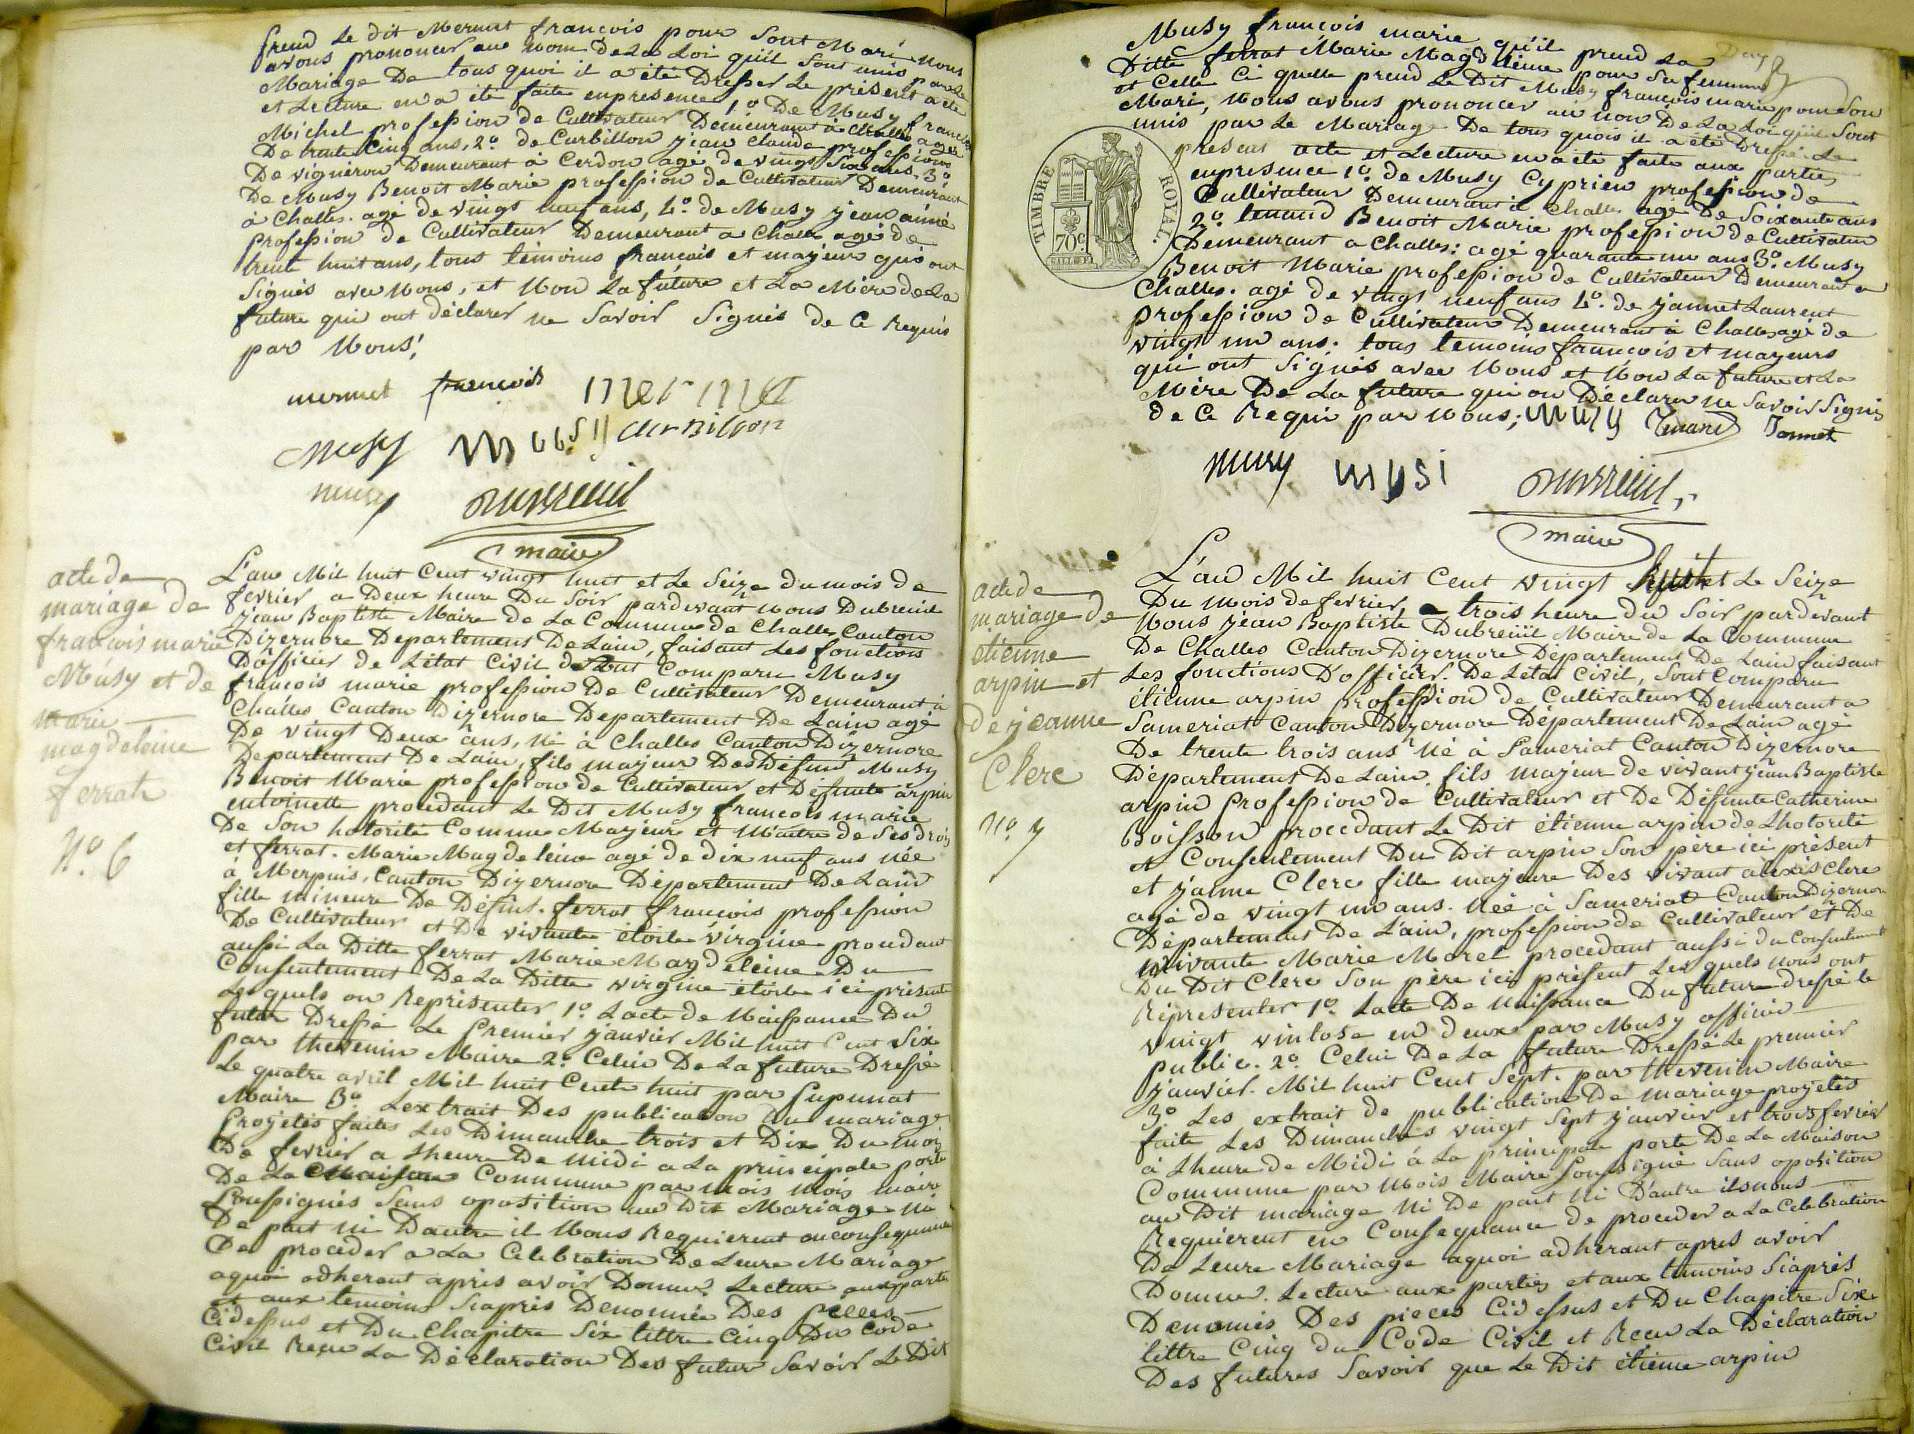 prend Le dit Mermet françois pour Sont Mari Nous
avons prononcer au Nom De La Loi quil Sont unis par Le
Mariage De tous quoi il a été Dresser Le présent acte
et Lecture en a été faite en presence 1o De Musy françois
Michel profession de Cultivateur Demeurant à Challes agée
De trente Cinq ans, 2o de Curbillon jean Claude profession
De vigneron Demeurant à Cerdon agé de vingt Six ans 3o
De Musy Benoit Marie profession de Cultivateur Demeurant
à Challes. agé de vingt neuf ans, 4o de Musy jean aimé
profession de Cultivateur Demeurant a Challes agé de
trent huit ans, tous témoins français et majeur qui ont
Signés avec Nous, et Non La future et La Mère de La
future qui ont déclarer ne Savoir Signés de Ce Requis
par Nous!
mermet françois mermet
Musy Musy curbilion
musy Dubreuil
maire
acte de
mariage de
françois marie
Músy et de
marie
magdeleine
ferrat
No. 6
L'an Mil huit Cent vingt huit et Le Seize du mois de
fevrier a Deux heure Du Soir pardevant nous Dubreuil
jean Baptiste Maire de La Commune de Challes Canton
Dizernore Departement De Lain, faisant Les fonctions
D'officier de L'état Civil Sont Comparu Musy
françois marie profession De Cultivateur Demeurant à
Challes Canton Dizernore Departement De Lain agé
De vingt Deux ans, né à Challes Canton Dizernore
Departement De Lain, fils majeur Des Défunt Musy
Benoit Marie profession de Cultivateur et Défunte arpin
entoinette procedant Le Dit Musy françois marie
De Son hotorité Comme Majeur et Maitre de Ses Droits
et ferrat. Marie Magdeleine agé de dix neuf ans Née
à Merpuis, Canton Dizernore Département De Lain
fille mineure De Défunt. ferrat françois profession
De Cultivateur et De vivante étoile virgine procedant
aussi La Ditte ferrat Marie Magdeleine Du
Consentement De La Ditte virgine étoile ici présente
Les quels on Représenter 1o Lacte de Naissance Du
futur Dressé Le Premier janvier Mil huit Cent Six
par thevenin Maire 2o Celui De La future Dressé
Le quatre avril Mil huit Cent huit par
Maire 3o Lextrait Des publication De mariage
Projetés faites Les Dimanche trois et Dix Du mois
De fevrier a Lheure De midi a La principale porte
De La Maison Commune par Mois Mois maire
Soussignés Sans oposition au Dit Mariage Ni
De part Ni Dautre il Nous Requierent en Consequence
De procéder a La Celebration De Leure Mariage
aquoi adherant après avoir Donner Lecture aux partie
et aux temoins Siaprès Denommée Des pièces
Cidessus et Du Chapitre Six tittre Cinq Du Code
Civil Reçu La Déclaration Des futur Savoir Le Dit
Musy françois marie qu'il prend La
Ditte ferrat Marie Magdeleine pour Sa femme
et Celle Ci quelle prend Le Dit Musy françois marie pour Son
Mari, Nous avons prononcer au Nom De La Loi quil Sont
unis par Le Mariage De tous quois il a été Dressé Le
présent acte et Lecture en a été faite aux parties
en presence 1o. de Musy Cyprien profession de
Cultivateur Demeurant à Challes agé De Soixante ans
2o tenand Benoit Marie profession de Cultivateur
Demeurant a Challes: agé quarante un ans 3o. Musy
Benoit Marie profession de Cultivateur Demeurant a
Challes. agé de vingt neuf ans 4o. de jannet Laurent
profession de Cultivateur Demeurant à Challes agé de
vingt un ans. tous temoins français et mayeurs
qui ont Signés avec Nous et Non La future et La
Mère De La future qui on Déclarer ne Savoir Signés
de Ce Requi par nous; Musy Tenand Jannet
TIMBRE ROYAL.
70c
musy musi Dubreuil
maire
acte de
mariage de
étienne
arpin et
de jeanne
Clerc
No. 7
L'an Mil huit Cent vingt huit et Le Seize
Du Mois de fevrier a trois heure du Soir pardevant
Nous jean Baptiste Dubreüil Maire de La Commune
De Challes Canton Dizernore Département De Lain faisant
Les fonctions D'officier. De Létat Civil, Sont Comparu
étienne arpin profession de Cultivateur Demeurant a
Sameriat Canton Dizernore Département De Lain agé
De trente trois ans Né à Sameriat Canton Dizernore
Département De Lain fils majeur de vivant jean Baptiste
arpin profession de Cultivateur et De Défunte Catherine
Boisson procedant Le Dit étienne arpin de Lhotorité
et Consentement Du Dit arpin Son père ici présent
et jeanne Clerc fille majeure Des vivant alexis Clerc
agé de vingt un ans. Née à Sameriat Canton Dizernore
Département De L'ain, profession de Cultivateur et De
vivante Marie Morel procedant aussi du Consentement
Du Dit Clerc Son père ici présent Les quels nous ont
Représenter 1o Lacte De Naissance Du future dressé le
vingt vintose en deux par Musy officier
public. 2o Celui De La future Dressé Le premier
janvier. Mil huit Cent Sept. par thevenin Maire
3o Les extrait de publication De mariage projetés
faite Les Dimanches vingt Sept janvier et trois fevrier
à Lheure de Midi à La principale porte De La Maison
Commune par Mois Maire Soussigné Sans oposition
au Dit mariage Ni De part Ni D'autre ils nous
Requierent en Consequance de proceder a La Celebration
De Leure Mariage aquoi adherant apres avoir
Donner Lecture aux parties et aux temoins Siaprès
Denomés Des pieces Cidessus et Du Chapitre Six
tittre Cinq du Code Civil et Reçu La Déclaration
Des futures Savoir que Le Dit étienne arpin